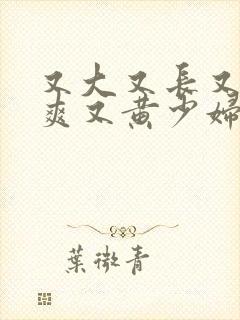 又大又長又
爽又黄少婦
葉微青